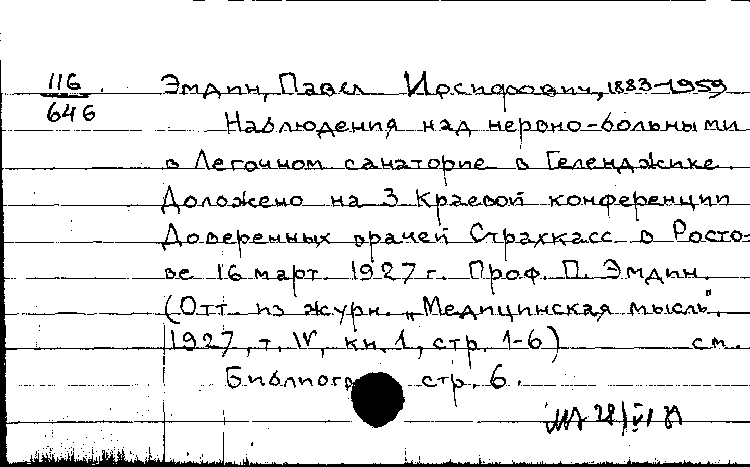 116
646
Эмдин, Павел Иосифович, 1883-1959
Наблюдения над нервно-больными
в Легочном санаторие в Геленджике.
Доложено на 3 Краевой конференции
Доверенных врачей Страхкасс в Росто-
ве 16 март. 1927 г. Проф. П. Эмдин.
(Отт. из журн. „Медицинская мысль".
1927, т. IV, кн. 1, стр. 1-6) см.
стр. 6.
28/VI